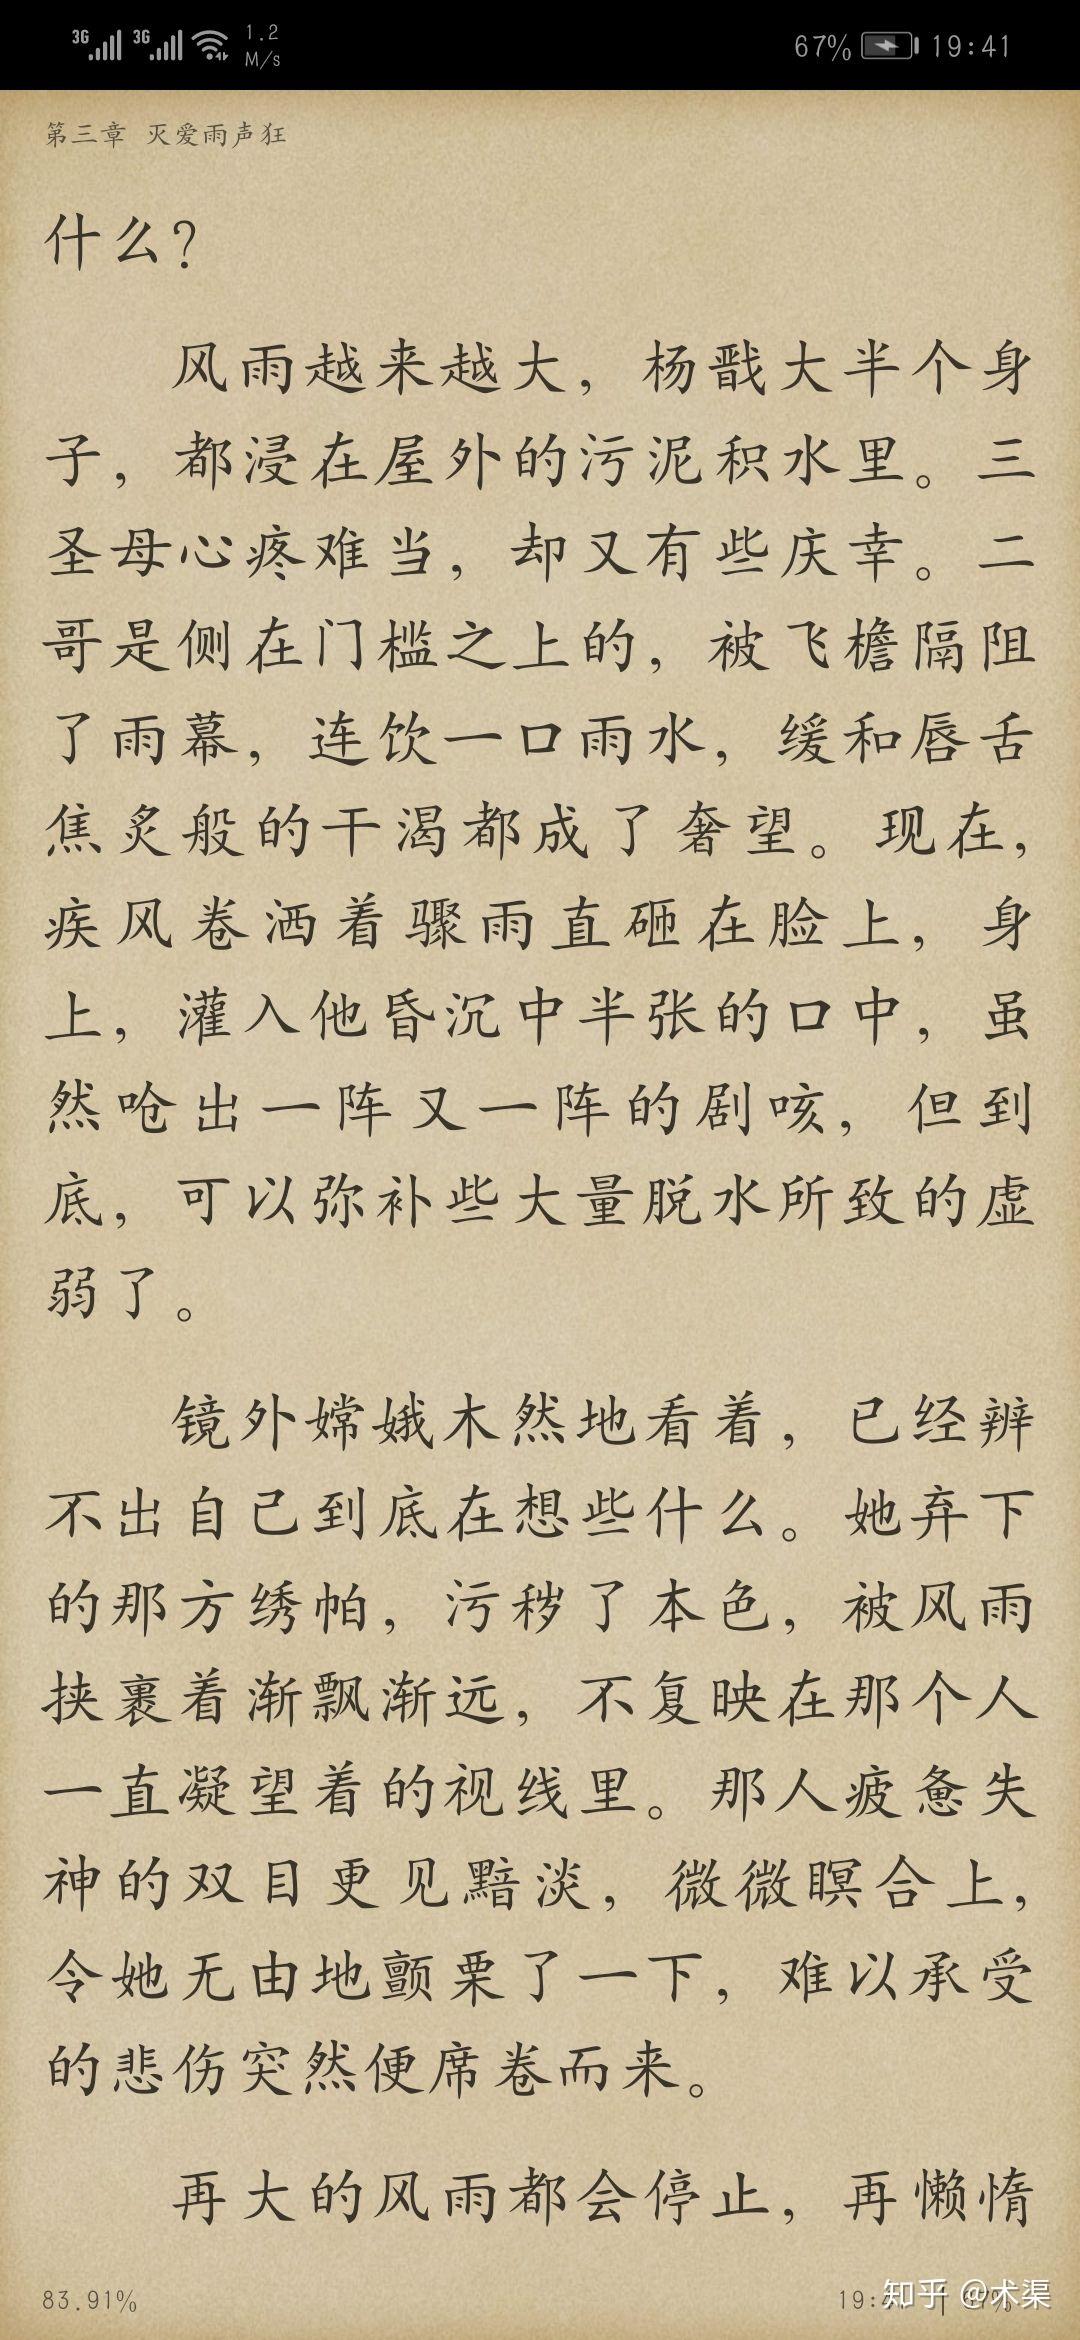 3G 3G 1.2 M/s 67% 19:41
第三章 灭爱雨声狂
什么？
风雨越来越大，杨戬大半个身
子，都浸在屋外的污泥积水里。三
圣母心疼难当，却又有些庆幸。二
哥是侧在门槛之上的，被飞檐隔阻
了雨幕，连饮一口雨水，缓和唇舌
焦炙般的干渴都成了奢望。现在，
疾风卷洒着骤雨直砸在脸上，身
上，灌入他昏沉中半张的口中，虽
然呛出一阵又一阵的剧咳，但到
底，可以弥补些大量脱水所致的虚
弱了。
镜外嫦娥木然地看着，已经辨
不出自己到底在想些什么。她弃下
的那方绣帕，污秽了本色，被风雨
挟裹着渐飘渐远，不复映在那个人
一直凝望着的视线里。那人疲惫失
神的双目更见黯淡，微微瞑合上，
令她无由地颤栗了一下，难以承受
的悲伤突然便席卷而来。
再大的风雨都会停止，再懒惰
83.91%
知乎 @术渠